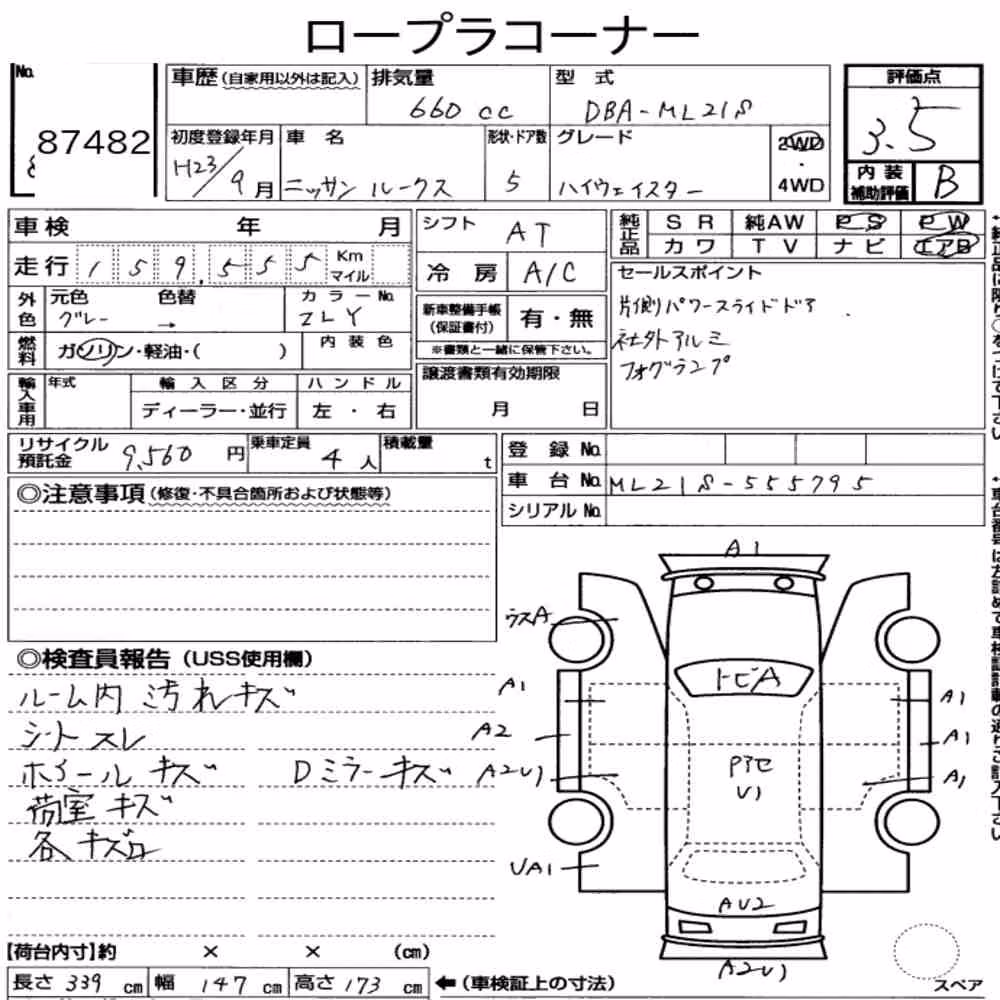 ロープラコーナー
No.
87482
車歴(自家用以外は記入)
排気量
660 cc
型 式
DBA-ML21S
評価点
3.5
初度登録年月
H23/9月
車 名
ニッサン ルークス
形状・ドア数
5
グレード
ハイウェイスター
2WD
・
4WD
内装
補助評価
B
車検 年 月
走行 159,555 Km
マイル
シフト AT
冷房 A/C
純正品
SR 純AW PS PW
カワ TV ナビ エアB
セールスポイント
片側パワースライドドア
社外アルミ
フォグランプ
外色
元色 色替 カラーNo.
グレー → ZLY
燃料
ガソリン・軽油・( )
内装色
新車整備手帳
(保証書付)
有・無
※書類と一緒に保管下さい。
輸入車用
年式
輸入区分
ハンドル
ディーラー・並行
左 ・ 右
譲渡書類有効期限
月 日
リサイクル
預託金
9,560 円
乗車定員
4 人
積載量
t
登録No.
車台No. ML21S-555795
シリアルNo.
◎注意事項(修復・不具合箇所および状態等)
◎検査員報告(USS使用欄)
ルーム内 汚れキズ
シートスレ
ホイールキズ Dミラーキズ
荷室キズ
各キズロ
A1
ウスA
トビA
A1
A2
A2U1
A1
A1
A1
Pアセ
U1
UA1
AU2
A2U1
スペア
【荷台内寸】約 × × (cm)
長さ 339 cm 幅 147 cm 高さ 173 cm
←(車検証上の寸法)